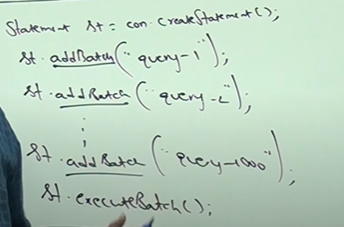 Statement st = con.createStatement();
st.addBatch("query-1");
st.addBatch("query-2");
⋮
st.addBatch("query-1000");
st.executeBatch();